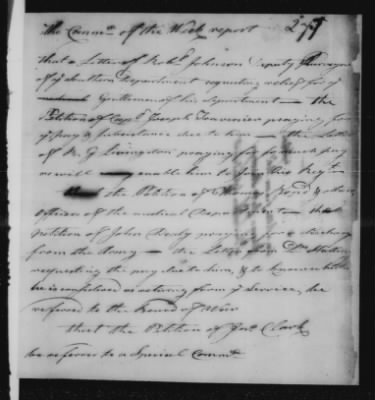 The Comme of the Week report
that a Letter of Robt Johnson Deputy
of ye Southern Department requesting relief for ye
Gentlemen of his Department — the
Petition of Capt Joseph praying for
ye pay & subsistance due to him — the Letter
of R. G Livingston praying for so much pay
as will enable him to Join his Regt
the Petition of Thomas Bond & other
officers of the medical Department — the
petition of John praying for a discharge
from the Army — the Letter from Dr
requesting the pay due to him, & to know whether
he is considered as retiring from ye Service, be
referred to the Board of War
that the Petition of Jno Clark
be referred to a Special Comme